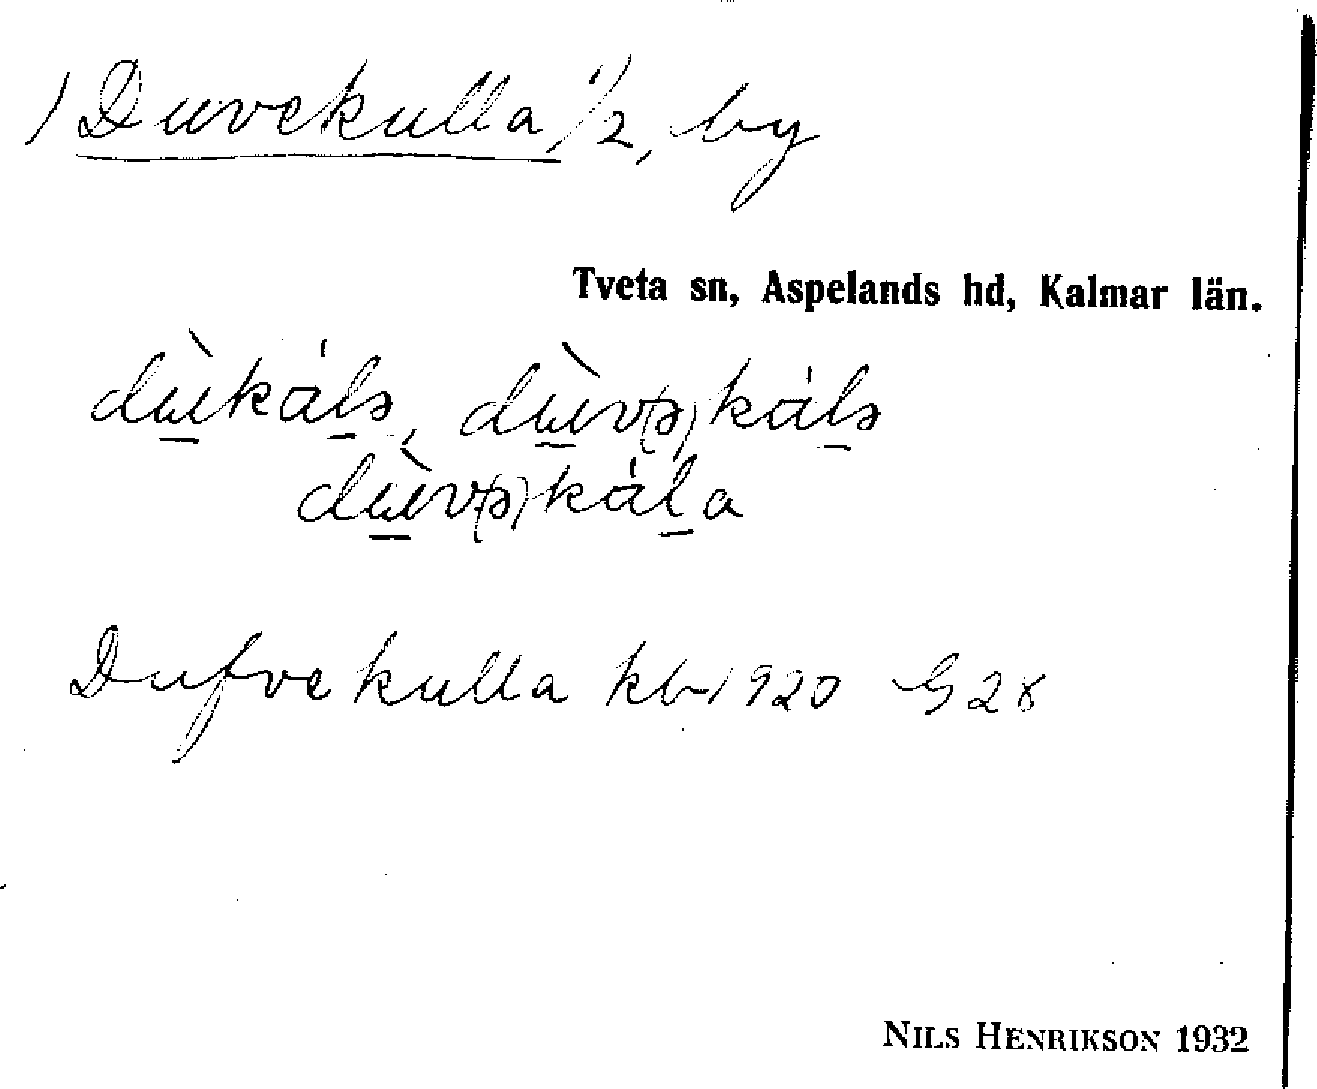 ) Duvekulla 1/2, by
Tveta sn, Aspelands hd, Kalmar län.
dùkálə, dùv(ə)kálə
dùv(ə)kála
Dufvekulla kb 1920 G28
NILS HENRIKSON 1932